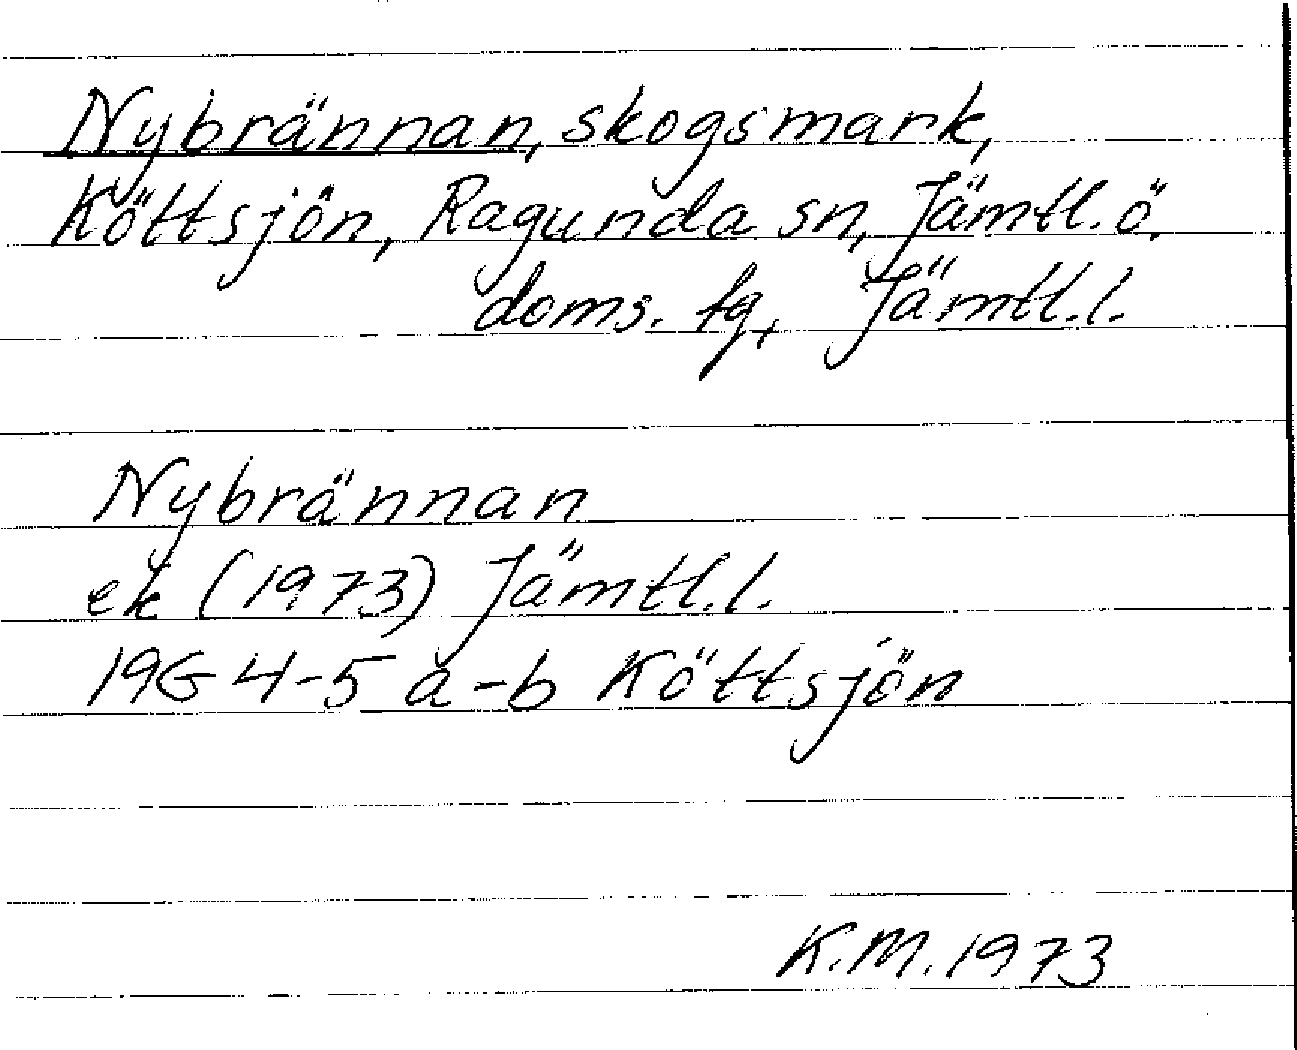 Nybrännan, skogsmark,
Köttsjön, Ragunda sn, Jämtl. ö.
doms. tg, Jämtl. l.
Nybrännan
ek (1973) Jämtl. l.
19G 4-5 a-b Köttsjön
K.M. 1973